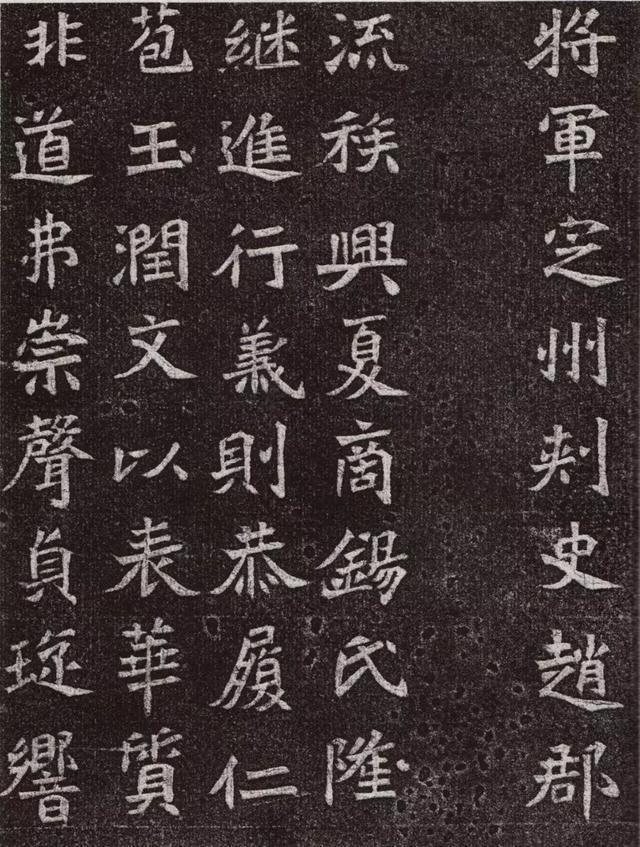 將軍定州刾史趙郡
流稅興夏商錫氏隆
継進行義則恭履仁
苞玉潤文以表華質
非道弗崇聲貞琁響